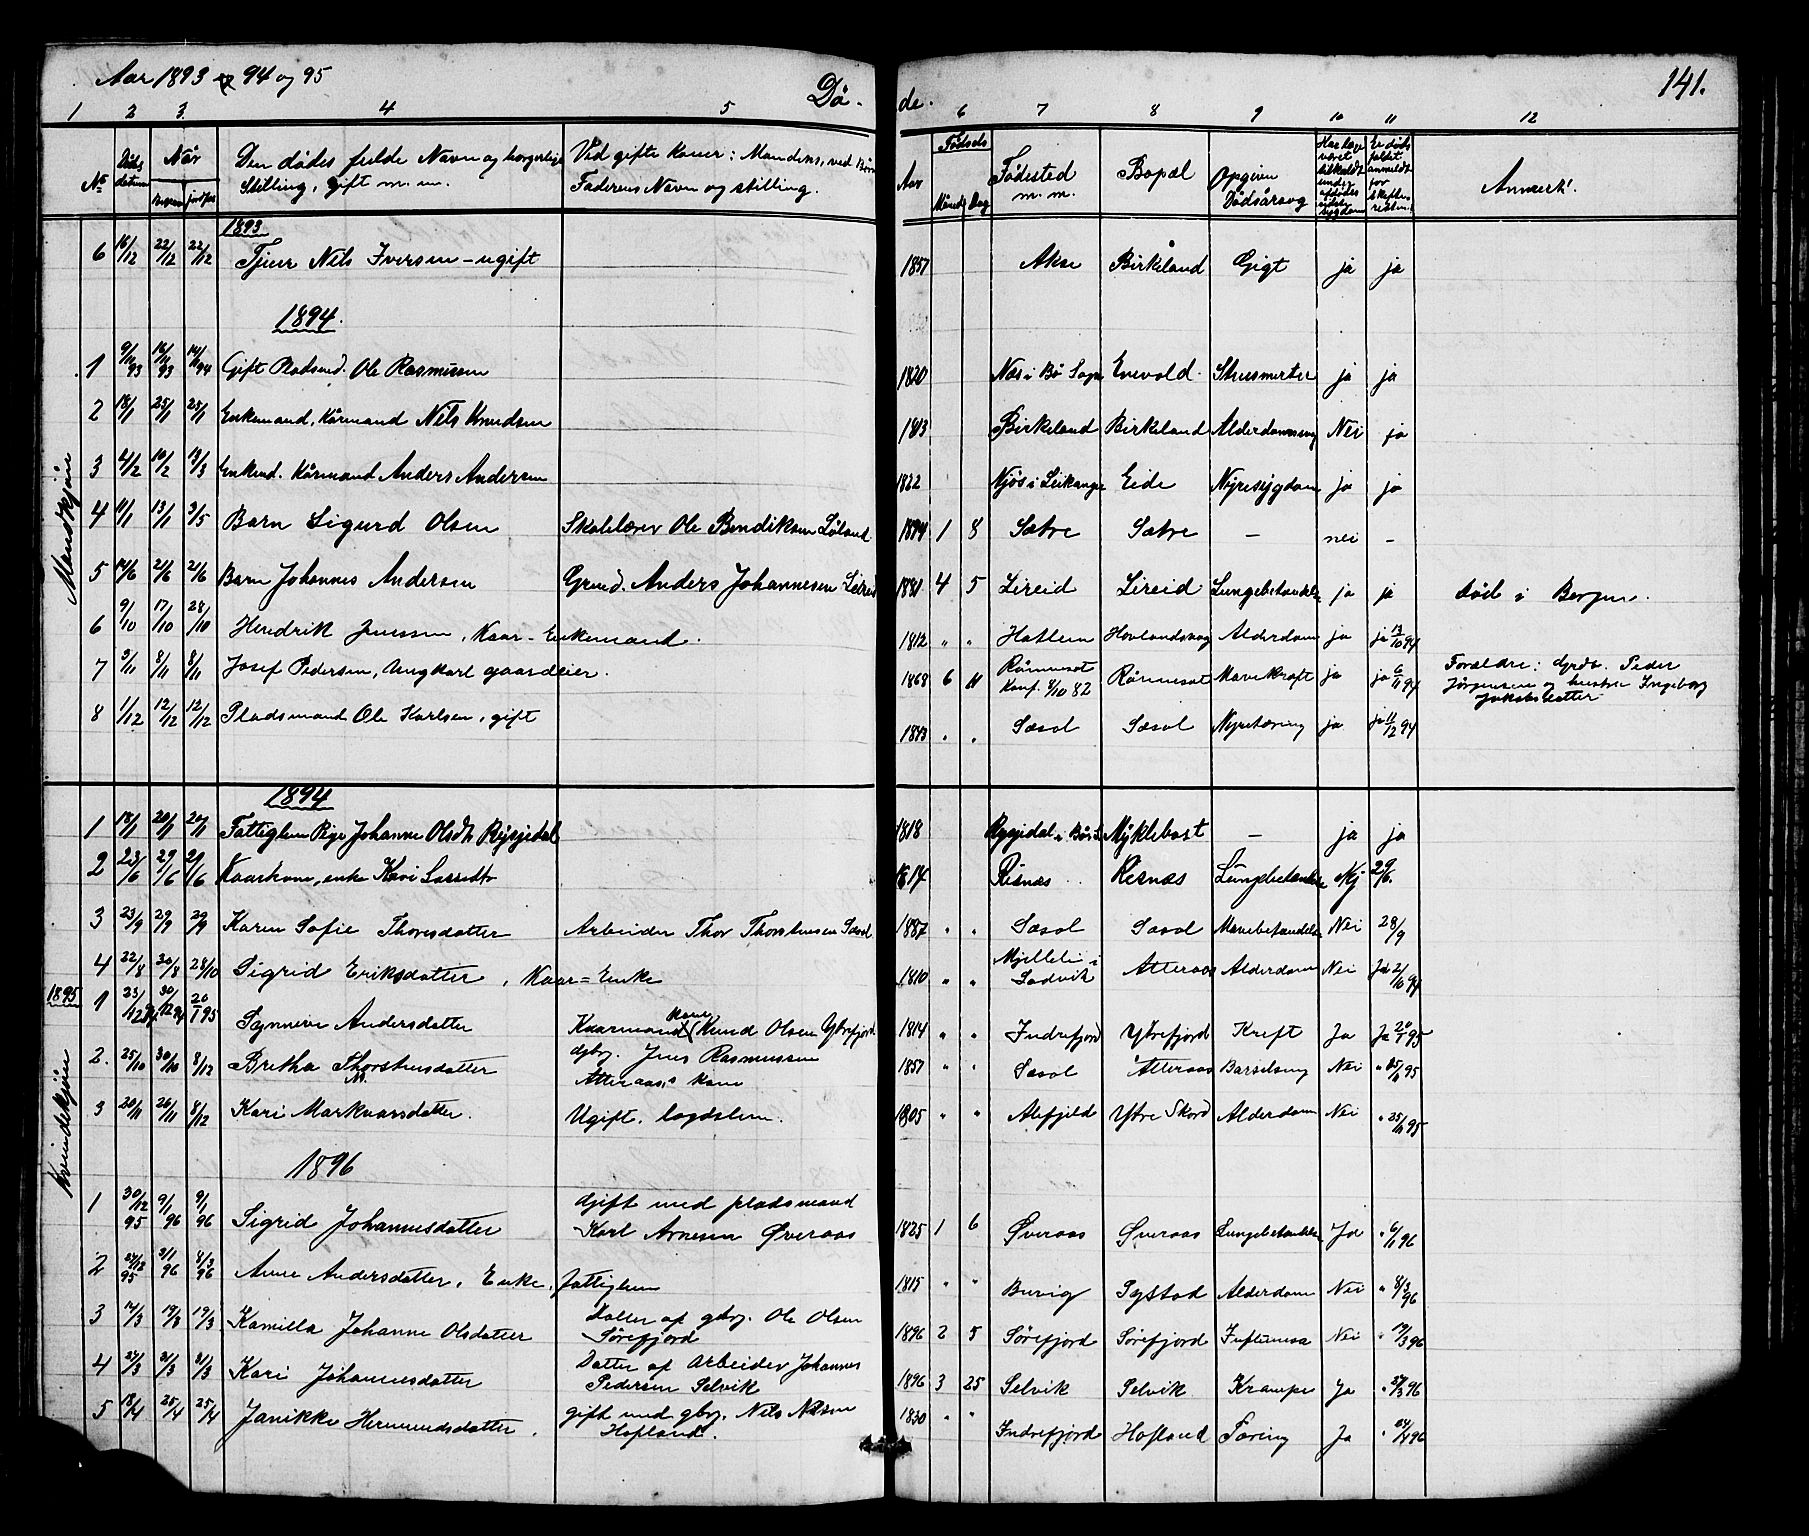 Aar 1893 94 og 95 Dø- de. 141.
1 2 3. 4 5 6 7 8 9 10 11 12
No Døds datum Naar Den dødes fulde Navn og borgerlige Stilling, gift m. m. Ved gifte Koner: Mandens, ved Børn Faderens Navn og stilling. Fødsels Aar Maaned Dag Fødested m. m. Bopæl Opgiven Dødsårsag Anmerk.
1893
6 16/12 22/12 22/12 Tjener Nils Iversen - ugift 1857 Akse Birkeland Gigt ja ja
1894.
Mandkjøn
1 9/11 93 16/11 93 Gift Pladsmd. Ole Rasmussen 1820 Næs i Bø Sogn Enevold Struesmerter ja ja
2 18/1 25/1 25/1 Enkemand, Kårmand Nils Knudsen 1813 Birkeland Birkeland Alderdomssvag Nei ja
3 4/2 10/2 13/3 Enkemd. Kårmand Anders Andersen 1822 Njøs i Leikanger Eide Nyresygdom ja ja
4 11/1 13/1 3/5 Barn Sigurd Olsen Skolelærer Ole Bendiksen Søland 1894 1 8 Sætre Sætre - nei -
5 14/6 21/6 21/6 Barn Johannes Andersen Grmd. Anders Johannesen Lireid 1881 4 5 Lireid Lireid Lungebetændelse ja ja død i Bergen.
6 9/10 17/10 28/10 Hendrik Jenssen, Kaar-Enkemand. 1812 " " Hatlem Alderdom ja ja 13/10 94
7 3/11 8/11 8/11 Josef Pedersen, Ungkarl gaardeier. 1868 6 11 Rønneset Konf. 8/10 82 Rønneset Mavekræft ja ja 6/11 94 Forældre: Peder
Jørgensen og hustru Ingeborg
Jakobsdatter
8 1/12 12/12 12/12 Pladsmand Ole Karlsen, gift 1843 " " Sæsol Sæsol Nyretæring ja ja 11/12 94
1894
Kvindekjøn
1 18/1 20/1 20/1 Fattiglem Pige Johanne Olsdt. Rysjedal 1818 Rysjedal i Bø S. Myklebost - ja ja
2 23/6 29/6 29/6 Kaarkone, enke Kari 1814 Risnæs Risnæs Lungebetændelse Nej 29/6.
3 23/9 29/9 29/9 Karen Sofie Thoresdatter Arbeider Thor Thorstensen Sæsol 1887 " " Sæsol Sæsol Mavebetændelse Nei 28/9
4 22/8 30/8 28/10 Sigrid Eriksdatter, Kaar=Enke 1810 " " Mjellelii i Ladvik Atteraas Alderdom Nei Ja 2/10 94
1895
1 23/12 94 30/12 94 20/1 95 Synneve Andersdatter Kaarmand Kone (Knud Olsen Ytrefjord 1814 " " Indrefjord Ytrefjord Kreft Ja Ja 20/1 95
2. 25/10 30/10 8/12 Bretha Thorstensdatter gbrg. Jens Rasmussen
Atteraas's kone 1857 " " Sæsol Atteraas Barselseng Nei " 25/11 95
3 20/11 26/11 8/12 Kari Markvarsdatter. Ugift, lægdslem. 1805 " " Alefjeld Ytre Skord Alderdom Nei " 25/11 95
1896
1 30/12 95 9/1 96 9/1 96 Sigrid Johannesdatter Gjift med pladsmand
Karl Arnesen Øveraas 1825 1 6 Øveraas Øveraas Lungebetændelse Ja " 6/1 96
2 27/12 95 3/1 96 8/3 96 Anne Andersdatter, Enke, fattiglem 1815 " " Buvig Systad Alderdom Nei " 8/3 96
3 14/3 19/3 19/3 Kamilla Johanne Olsdatter Datter af gbrg. Ole Olsen
Sørefjord 1896 2 5 Sørefjord Sørefjord Influensa Nei " 19/3 96
4 27/3 31/3 31/3 Kari Johannesdatter Datter af Arbeider Johannes
Pedersen Selvik 1896 3 25 Selvik Selvik Krampe Ja " 27/3 96
5 18/4 25/4 25/4 Janikke Hermundsdatter. gift med gbrg. Nils Nilsen
Hofland. 1830 " " Indrefjord Hofland Tæring Ja " 24/4 96